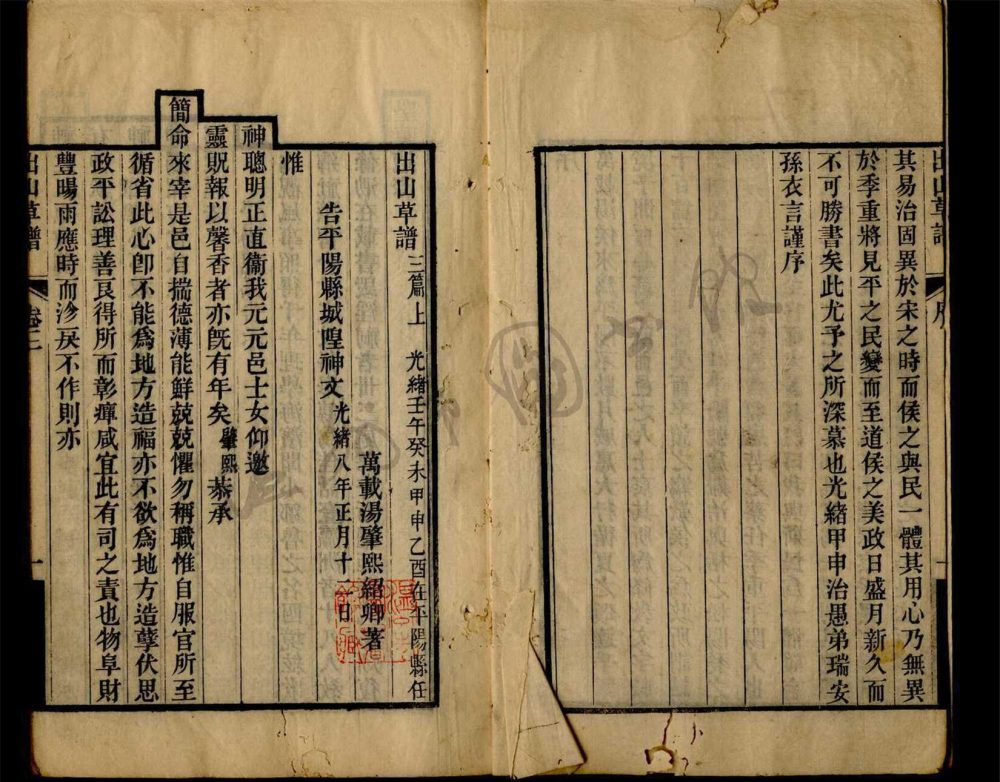 其易治固異於宋之時而侯之與民一體其用心乃無異
於季重將見平之民變而至道侯之美政日盛月新久而
不可勝書矣此尤予之所深慕也光緒甲申治愚弟瑞安
孫衣言謹序
出山草譜 三篇上 光緒壬午癸未甲申乙酉在平陽縣任
萬載湯肇熙紹卿著
告平陽縣城隍神文 光緒八年正月十二日
惟
神聰明正直衞我元元邑士女仰邀
靈貺報以馨香者亦旣有年矣肇熙恭承
簡命來宰是邑自揣德薄能鮮兢兢懼勿稱職惟自服官所至
循省此心卽不能爲地方造福亦不欲爲地方造孽伏思
政平訟理善良得所而彰癉咸宜此有司之責也物阜財
豐暘雨應時而沴戾不作則亦
出山草譜 卷三 一